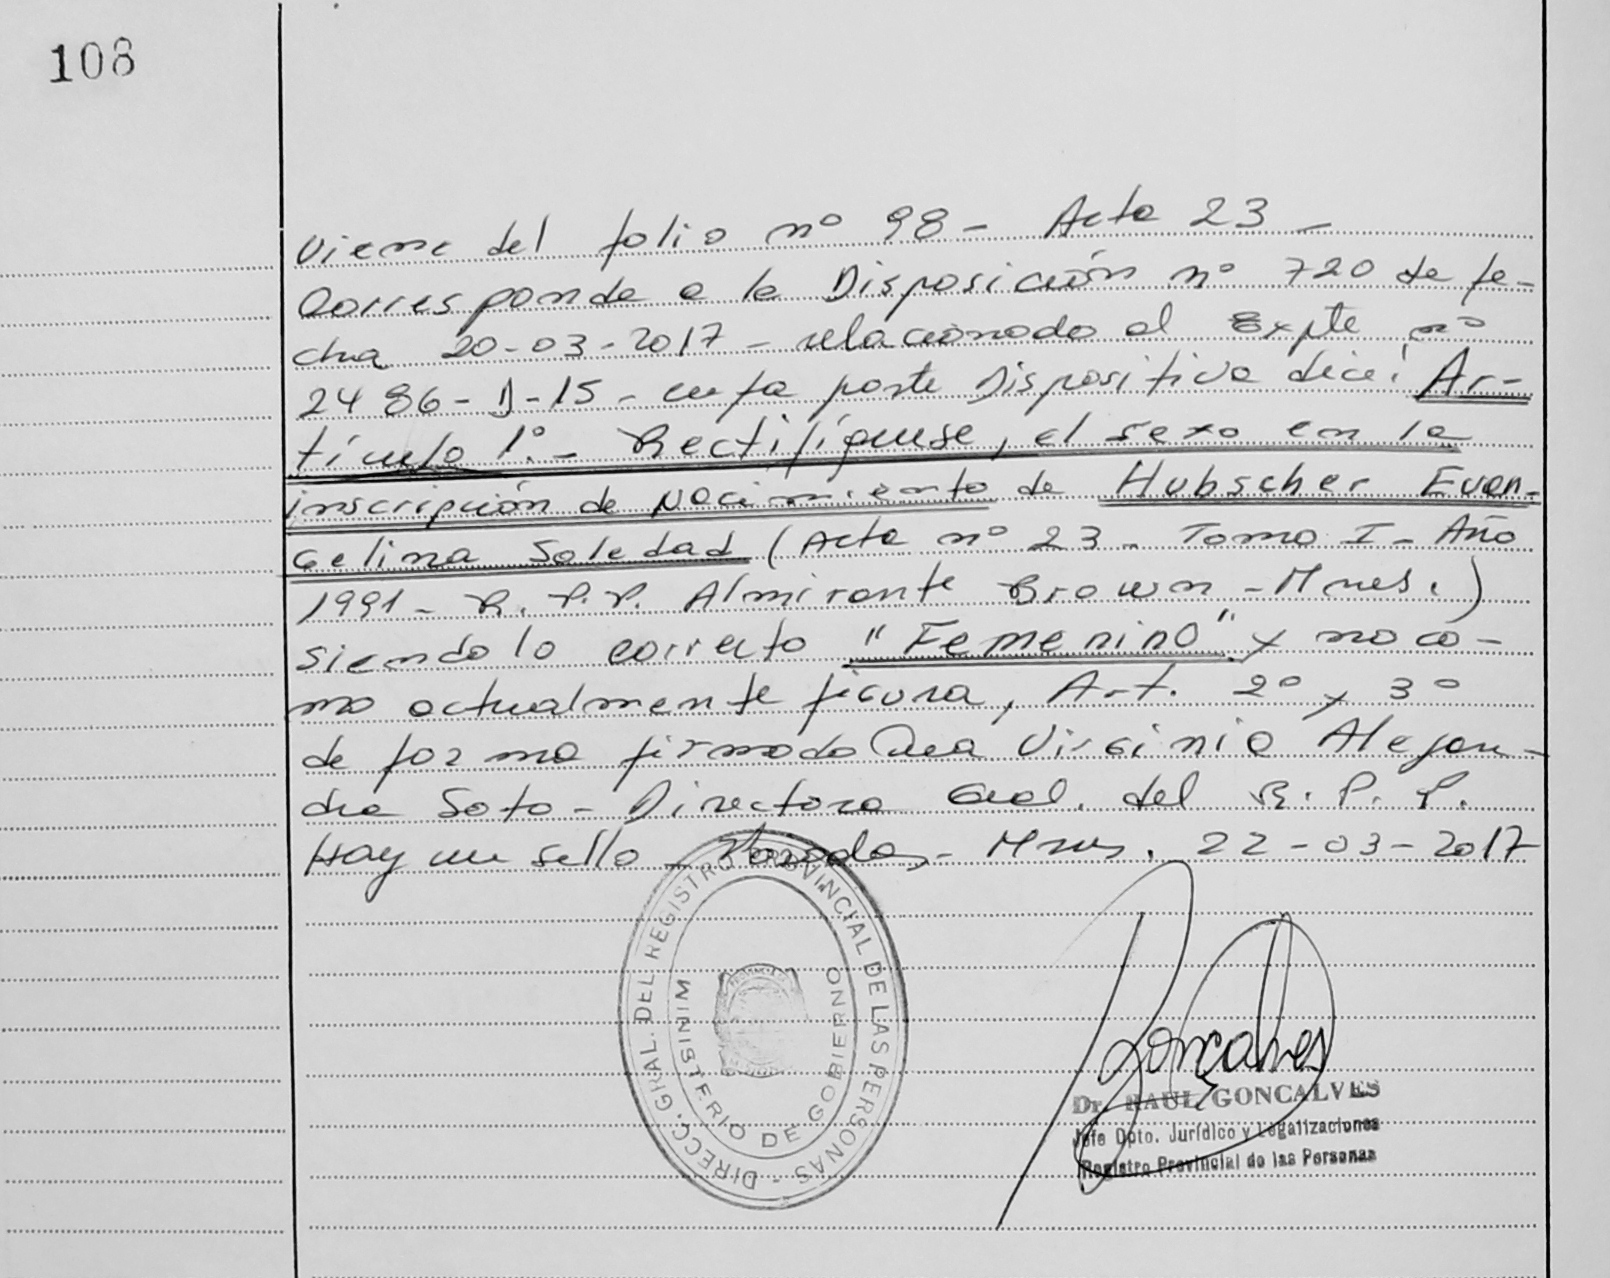 108
Viene del folio nº 98 - Acta 23 -
Corresponde a la Disposición nº 720 de fe-
cha 20-03-2017 - relacionado al Expte nº
2486-D-15 - cuya parte Dispositiva dice: Ar-
tículo 1º.- Rectifíquese, el sexo en la
inscripción de Nacimiento de Hubscher Evan-
gelina Soledad (Acta nº 23 - Tomo I - Año
1991 - R. P. P. Almirante Brown - Mnes.)
siendo lo correcto "Femenino" y no co-
mo actualmente figura, Art. 2º y 3º
de forma firmado Dra Virginia Alejan-
dra Soto - Directora Gral. del R. P. P.
Hay un sello - Posadas, - Mnes. 22-03-2017
DIRECC. GRAL. DEL REGISTRO PROVINCIAL DE LAS PERSONAS -
MINISTERIO DE GOBIERNO
Gonçalves
Dr. RAUL GONCALVES
Jefe Dpto. Jurídico y Legalizaciones
Registro Provincial de las Personas